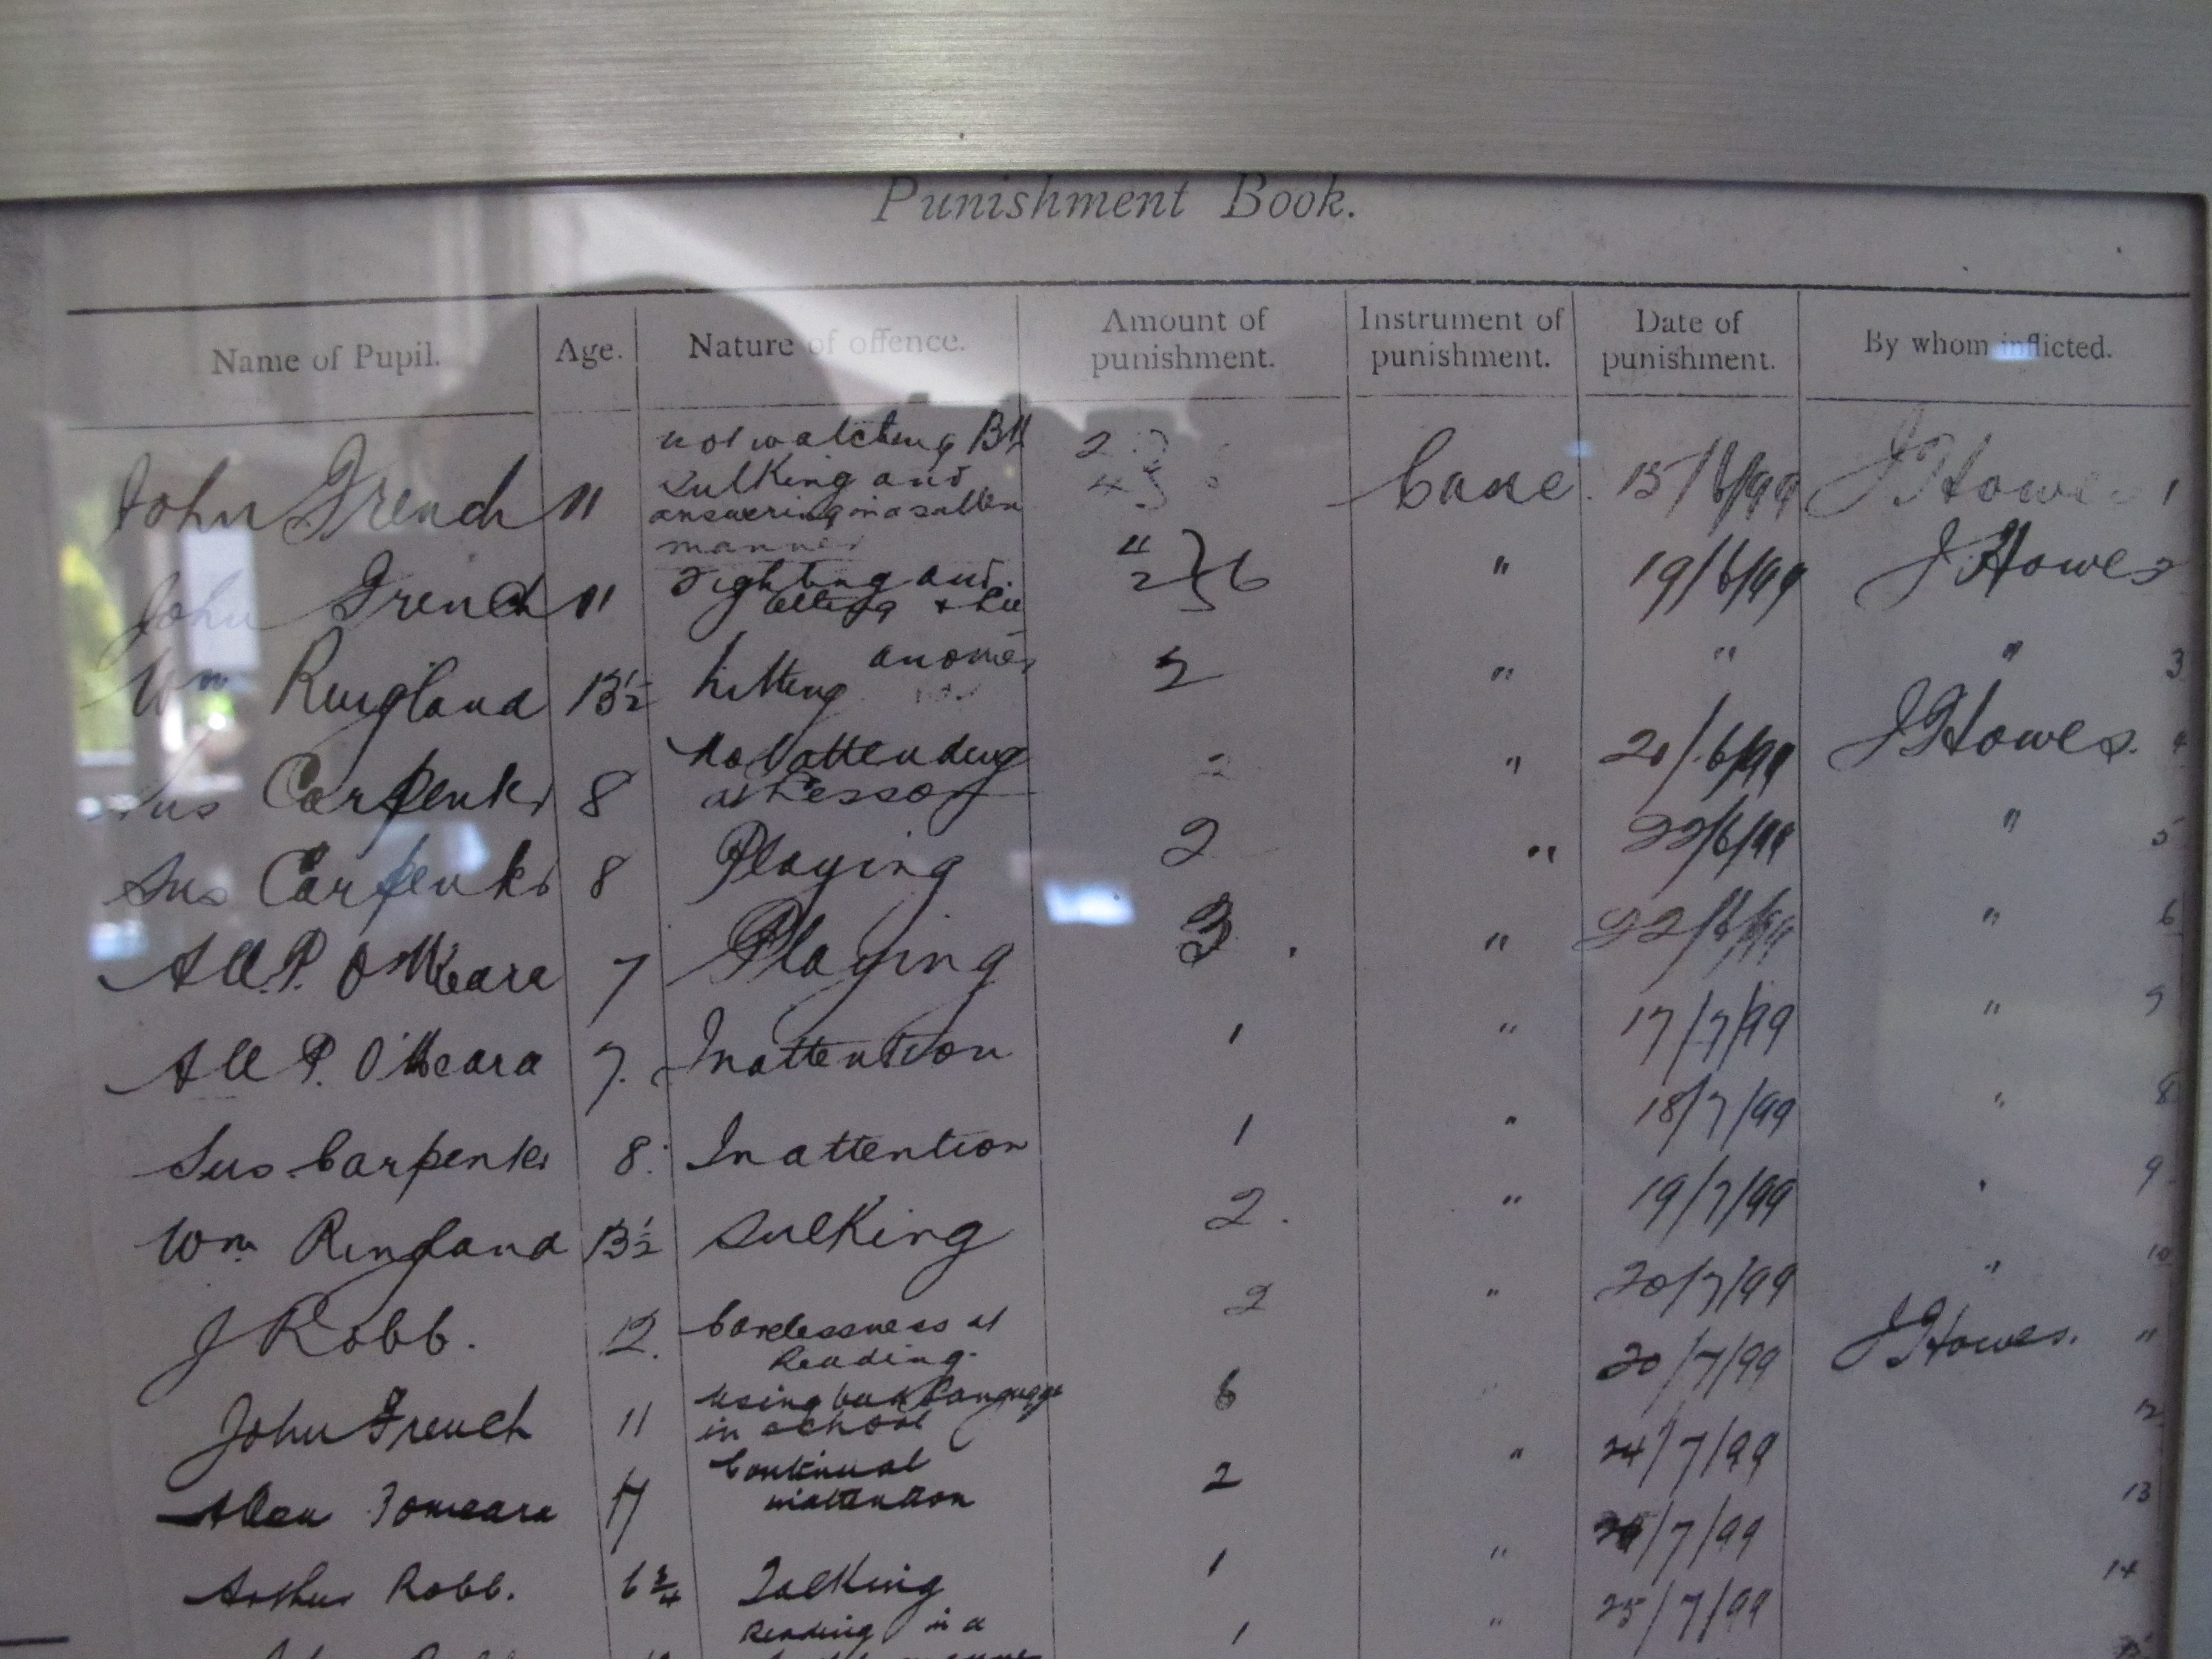 Punishment Book.
Name of Pupil. Age. Nature of offence. Amount of punishment. Instrument of punishment. Date of punishment. By whom inflicted.
John French 11 not watching BB sulking and answering in a sullen manner 2 4 } Cane. 15/6/99 J Howes 1
John French 11 Fighting and telling a lie 4 2 } 6 " 19/6/99 J Howes
Wm Ringland 13½ hitting another 2 " " " 3
Gus Carpenter 8 Not attending at Lesson 2 " 21/6/99 J Howes. 4
Gus Carpenter 8 Playing 2 " 22/6/99 " 5
All. P. O'Meara 7 Playing 3 " 22/6/99 " 6
All P. O'Meara 7. Inattention 1 " 17/7/99 " 7
Gus Carpenter 8. Inattention 1 " 18/7/99 " 8
Wm Ringland 13½ Sulking 2. " 19/7/99 " 9
J Robb. 12. Carelessness at Reading. 2 " 20/7/99 " 10
John French 11 using bad language in school 6 20/7/99 J Howes. 11
Allen O'Meara 7 Continual inattention 2 " 24/7/99 12
Arthur Robb. 6¾ Talking 1 " /7/99 13
Reading in a 1 " 25/7/99 14